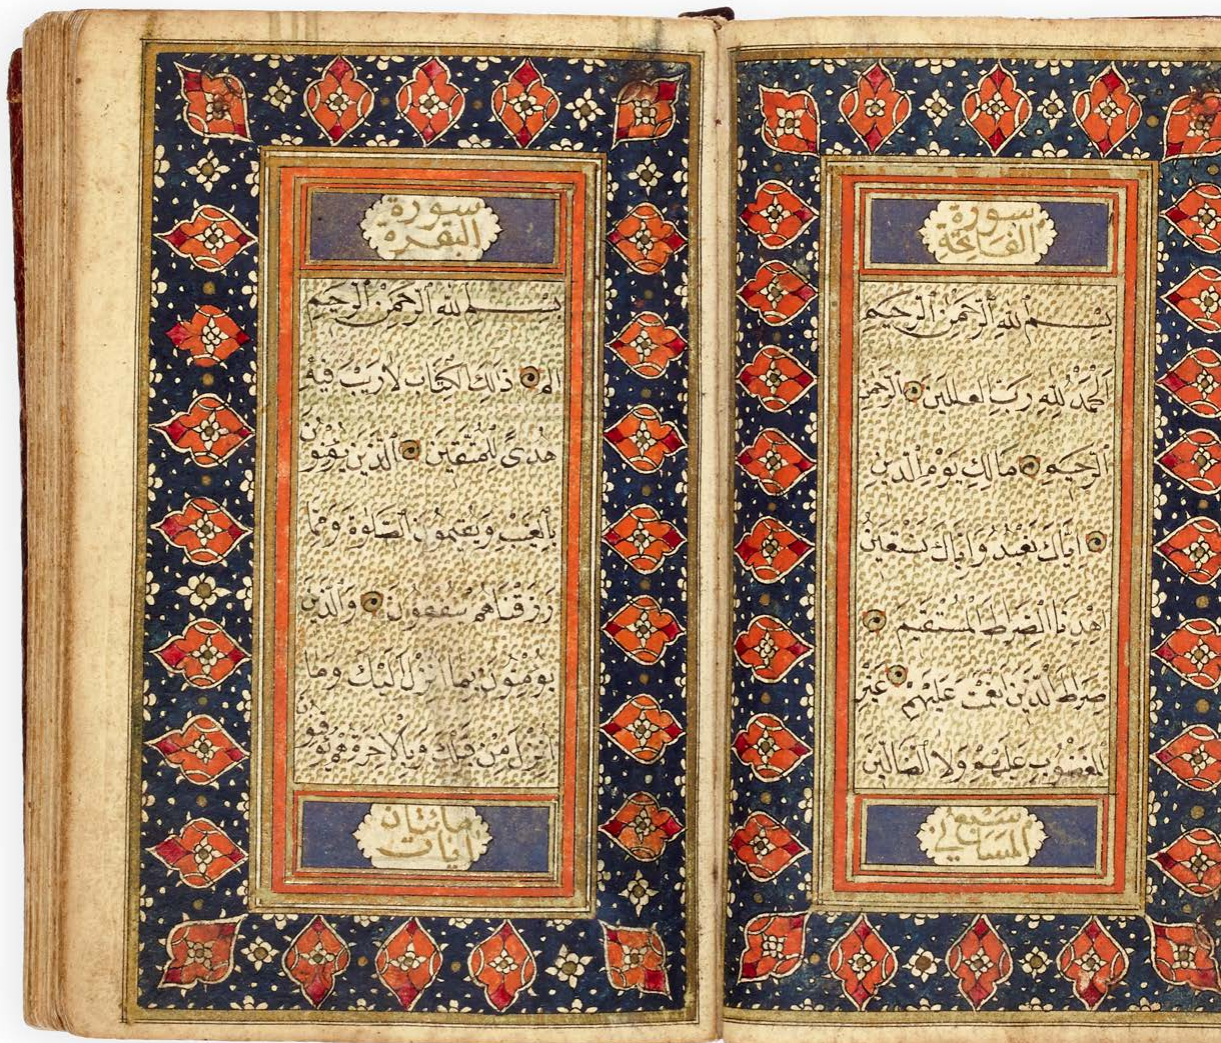 سورة
الفاتحة
بِسْمِ اللهِ الرَّحْمٰنِ الرَّحِيمِ
اَلْحَمْدُ لِلّٰهِ رَبِّ الْعٰلَمِينَ الرَّحْمٰنِ
الرَّحِيمِ مَالِكِ يَوْمِ الدِّينِ
اِيَّاكَ نَعْبُدُ وَاِيَّاكَ نَسْتَعِينُ
اِهْدِنَا الصِّرَاطَ الْمُسْتَقِيمَ
صِرَاطَ الَّذِينَ اَنْعَمْتَ عَلَيْهِمْ غَيْرِ
الْمَغْضُوبِ عَلَيْهِمْ وَلَا الضَّالِّينَ
سبع
المثاني
سورة
البقرة
بِسْمِ اللهِ الرَّحْمٰنِ الرَّحِيمِ
الم ذٰلِكَ الْكِتَابُ لَا رَيْبَ فِيهِ
هُدًى لِلْمُتَّقِينَ اَلَّذِينَ يُؤْمِنُونَ
بِالْغَيْبِ وَيُقِيمُونَ الصَّلٰوةَ وَمِمَّا
رَزَقْنَاهُمْ يُنْفِقُونَ وَالَّذِينَ
يُؤْمِنُونَ بِمَا اُنْزِلَ اِلَيْكَ وَمَا
اُنْزِلَ مِنْ قَبْلِكَ وَبِالْاٰخِرَةِ هُمْ يُوقِنُونَ
مائتان
آيات